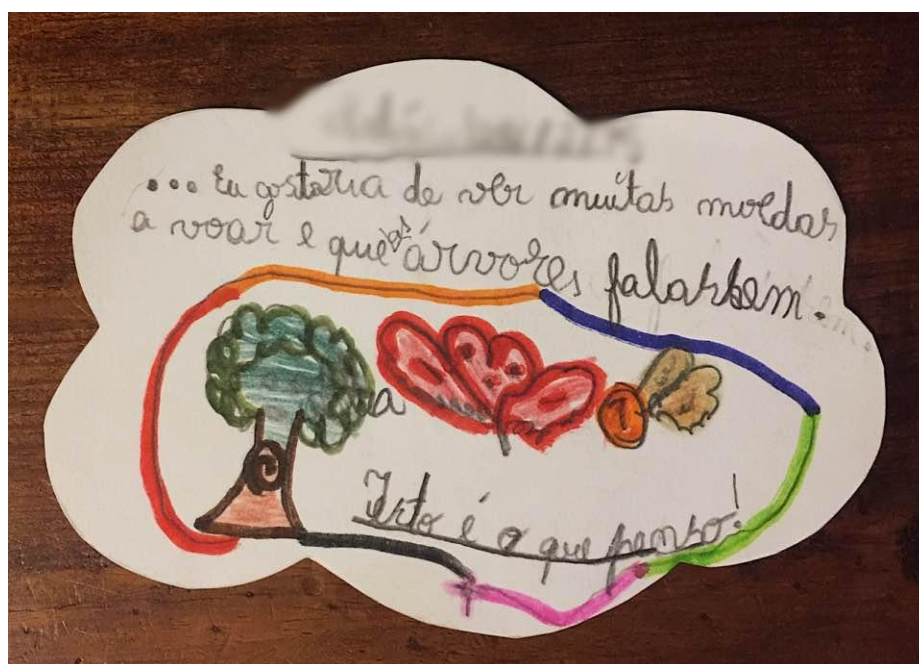 ... Eu gostaria de ver muitas moedas
a voar e que as árvores falassem.
a
1
Isto é o que penso!